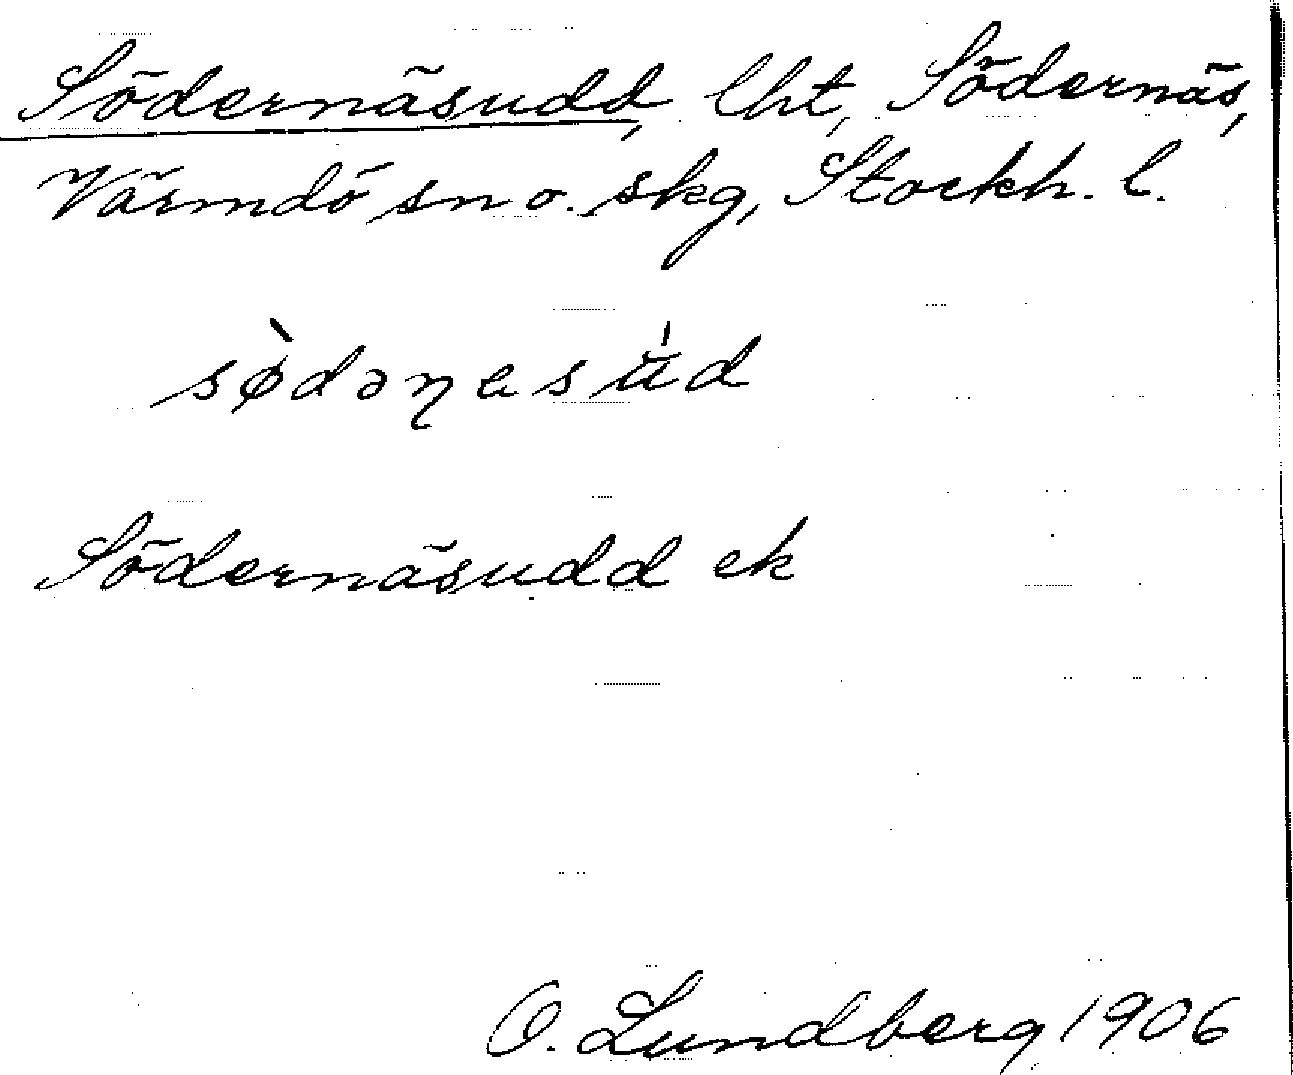 Södernäsudd, lht, Södernäs,
Värmdö sn o. skg, Stockh. l.
sø̀dəɳesu̍d
Södernäsudd ek
O. Lundberg 1906